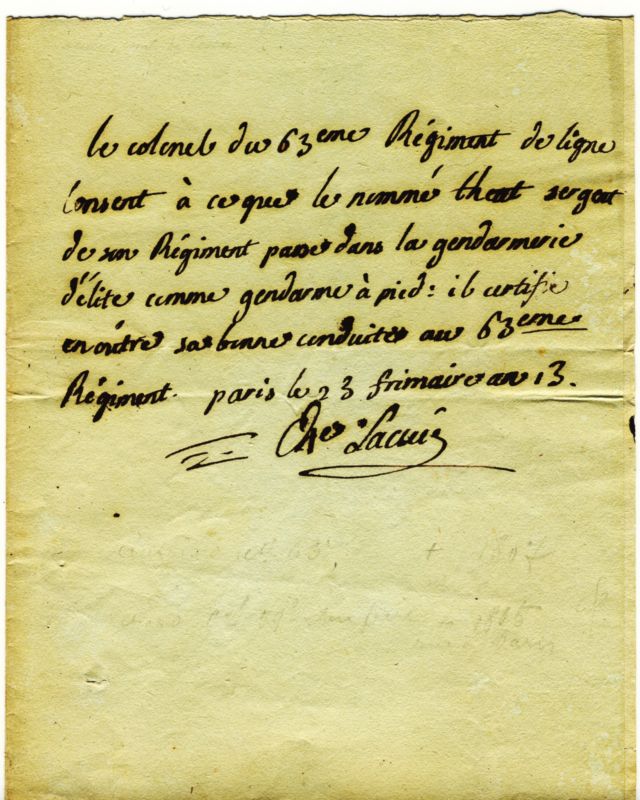 le colonel du 63eme Régiment de ligne
Consent à ce que le nommé thent sergent
de son Régiment passe dans la gendarmerie
d'élite comme gendarme à pied: il certifie
en outre sa bonne conduite au 63eme
Régiment. paris le 23 frimaire an 13.
Che Lacuée
63
+ 1807
1806